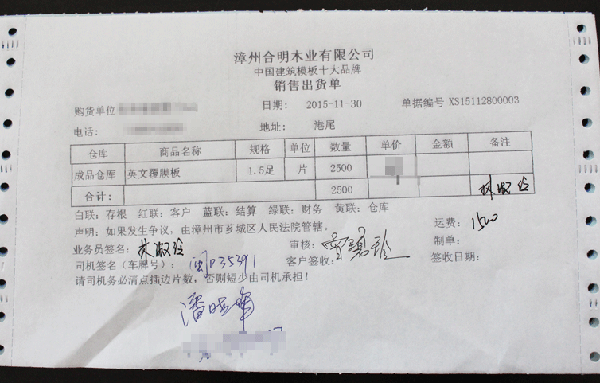 漳州合明木业有限公司
中国建筑模板十大品牌
销售出货单
购货单位 日期: 2015-11-30 单据编号 XS15112800003
电话: 地址: 池尾
仓库 商品名称 规格 单位 数量 单价 金额 备注
成品仓库 英文覆膜板 1.5足 片 2500
合计: 2500 林淑玲
白联: 存根 红联: 客户 蓝联: 结算 绿联: 财务 黄联: 仓库
声明: 如果发生争议, 由漳州市芗城区人民法院管辖。 运费: 1500
业务员签名: 林淑玲 审核: 制单:
司机签名（车牌号）: 闽D35391 客户签收: 签收日期:
请司机务必清点插边片数, 否则短少由司机承担!